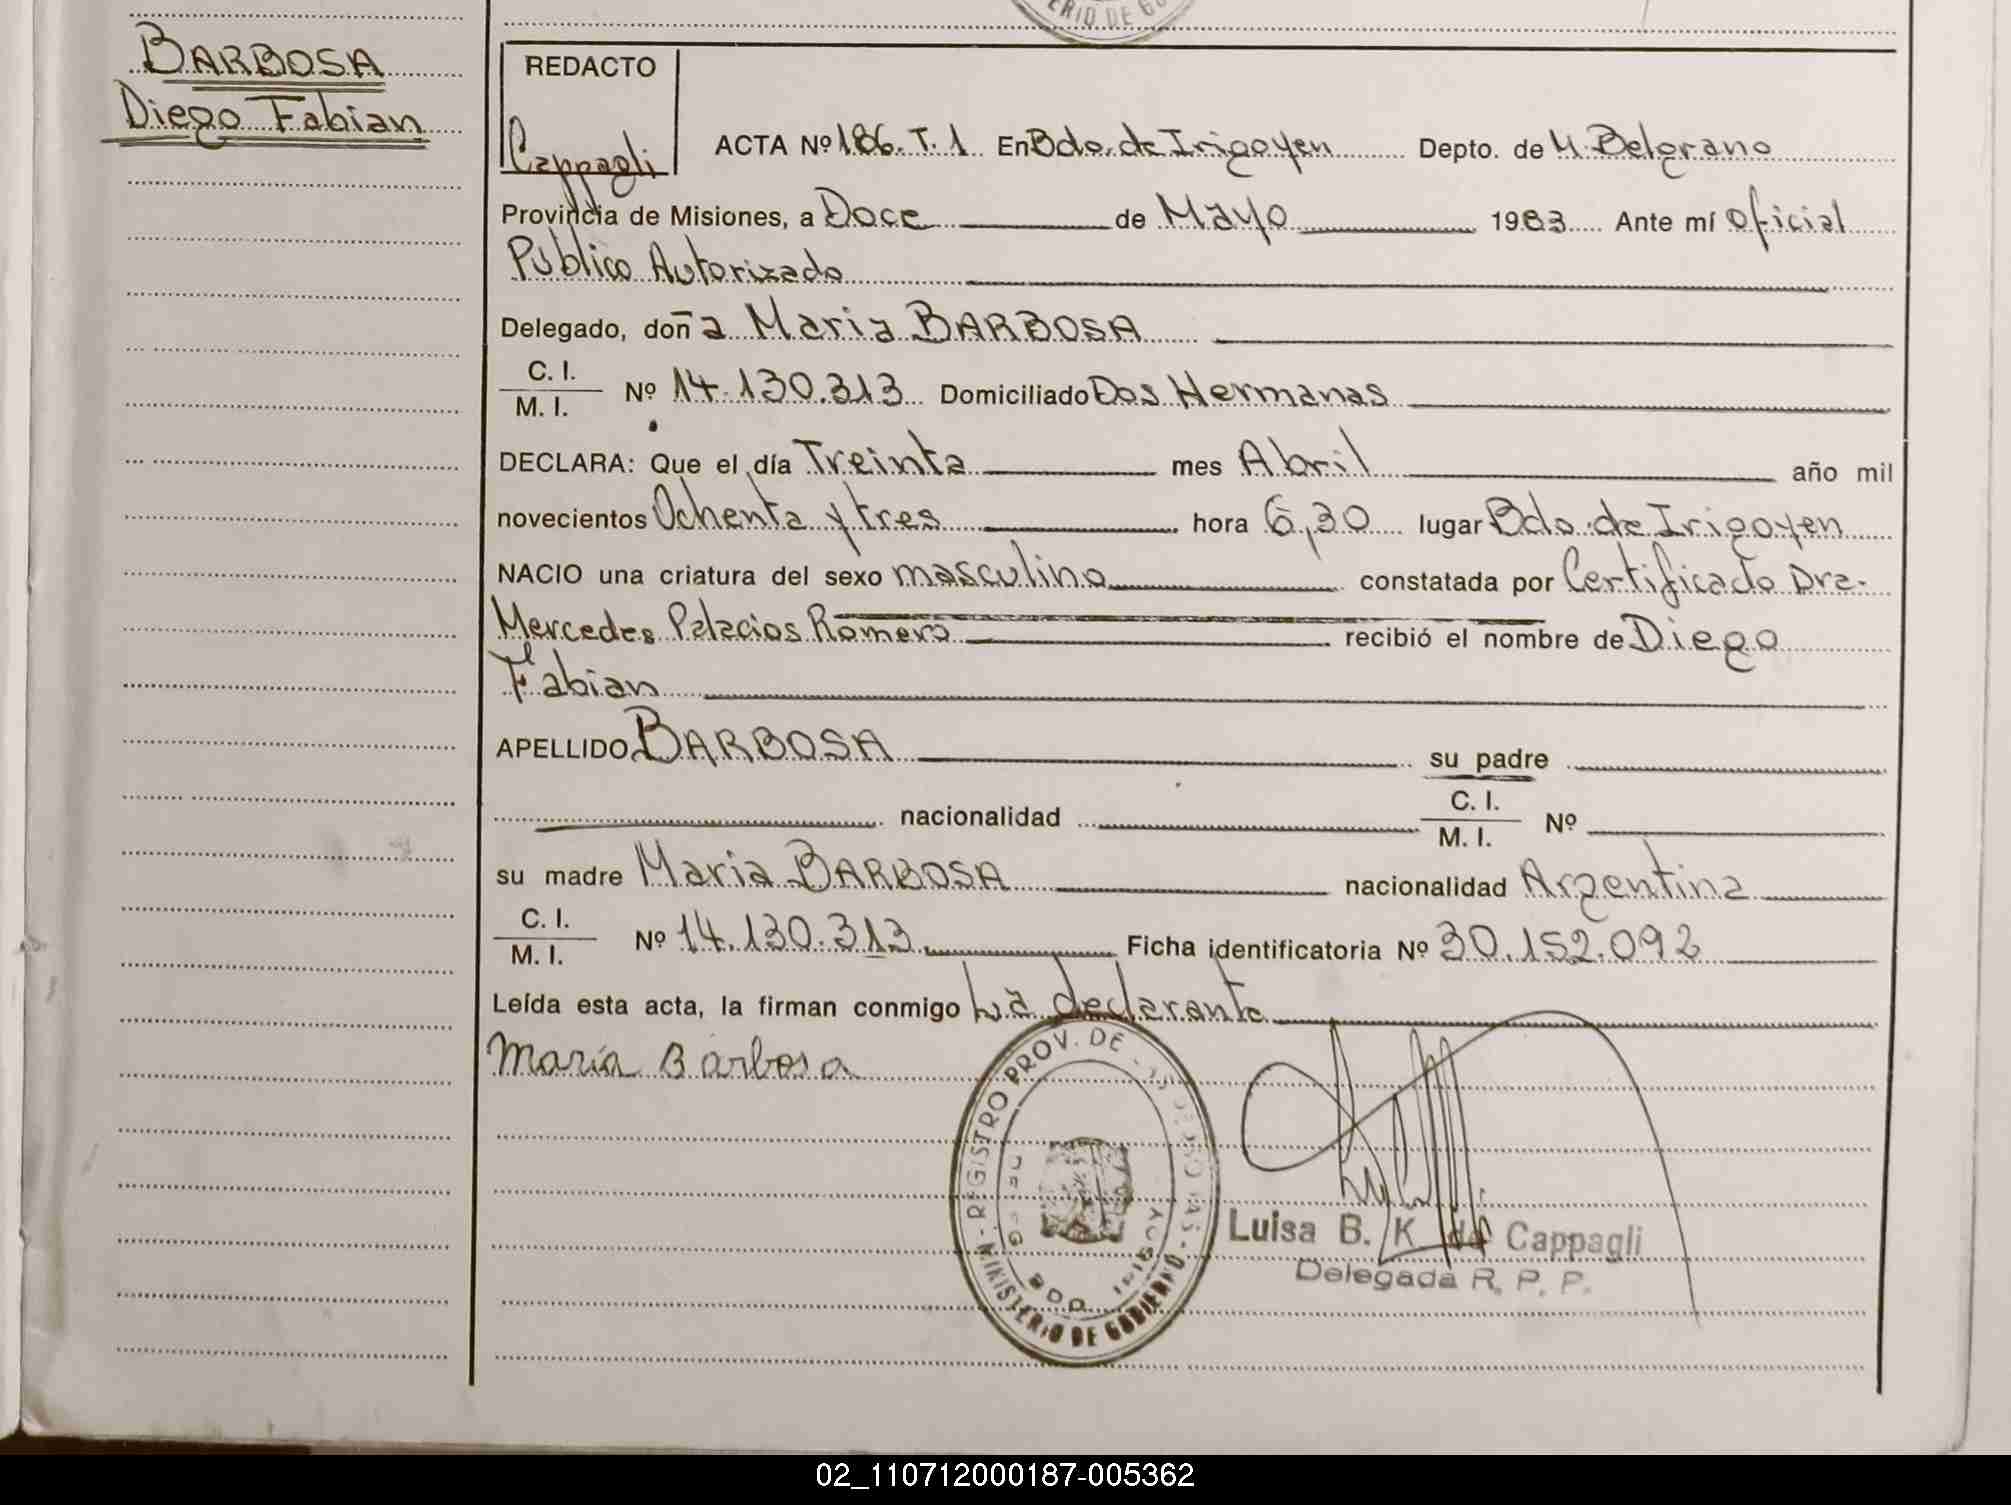 ERIO DE GO
BARBOSA
Diego Fabian
REDACTO
Cappagli
ACTA Nº 186. T. 1 En Bdo. de Irigoyen Depto. de M. Belgrano
Provincia de Misiones, a Doce de Mayo 1983 Ante mí oficial
Público Autorizado
Delegado, doña Maria BARBOSA
C. I.
M. I. Nº 14.130.313 Domiciliado Dos Hermanas
DECLARA: Que el día Treinta mes Abril año mil
novecientos Ochenta y tres hora 6,30 lugar Bdo. de Irigoyen
NACIO una criatura del sexo masculino constatada por Certificado Dra.
Mercedes Palacios Romero recibió el nombre de Diego
Fabian
APELLIDO BARBOSA su padre
nacionalidad C. I. M. I. Nº
su madre Maria BARBOSA nacionalidad Argentina
C. I.
M. I. Nº 14.130.313 Ficha identificatoria Nº 30.152.092
Leída esta acta, la firman conmigo La declarante
Maria Barbosa
REGISTRO PROV. DE LAS PERSONAS
BDO. IRIGOYEN
MINISTERIO DE GOBIERNO
Luisa B. K de Cappagli
Delegada R. P. P.
02_110712000187-005362